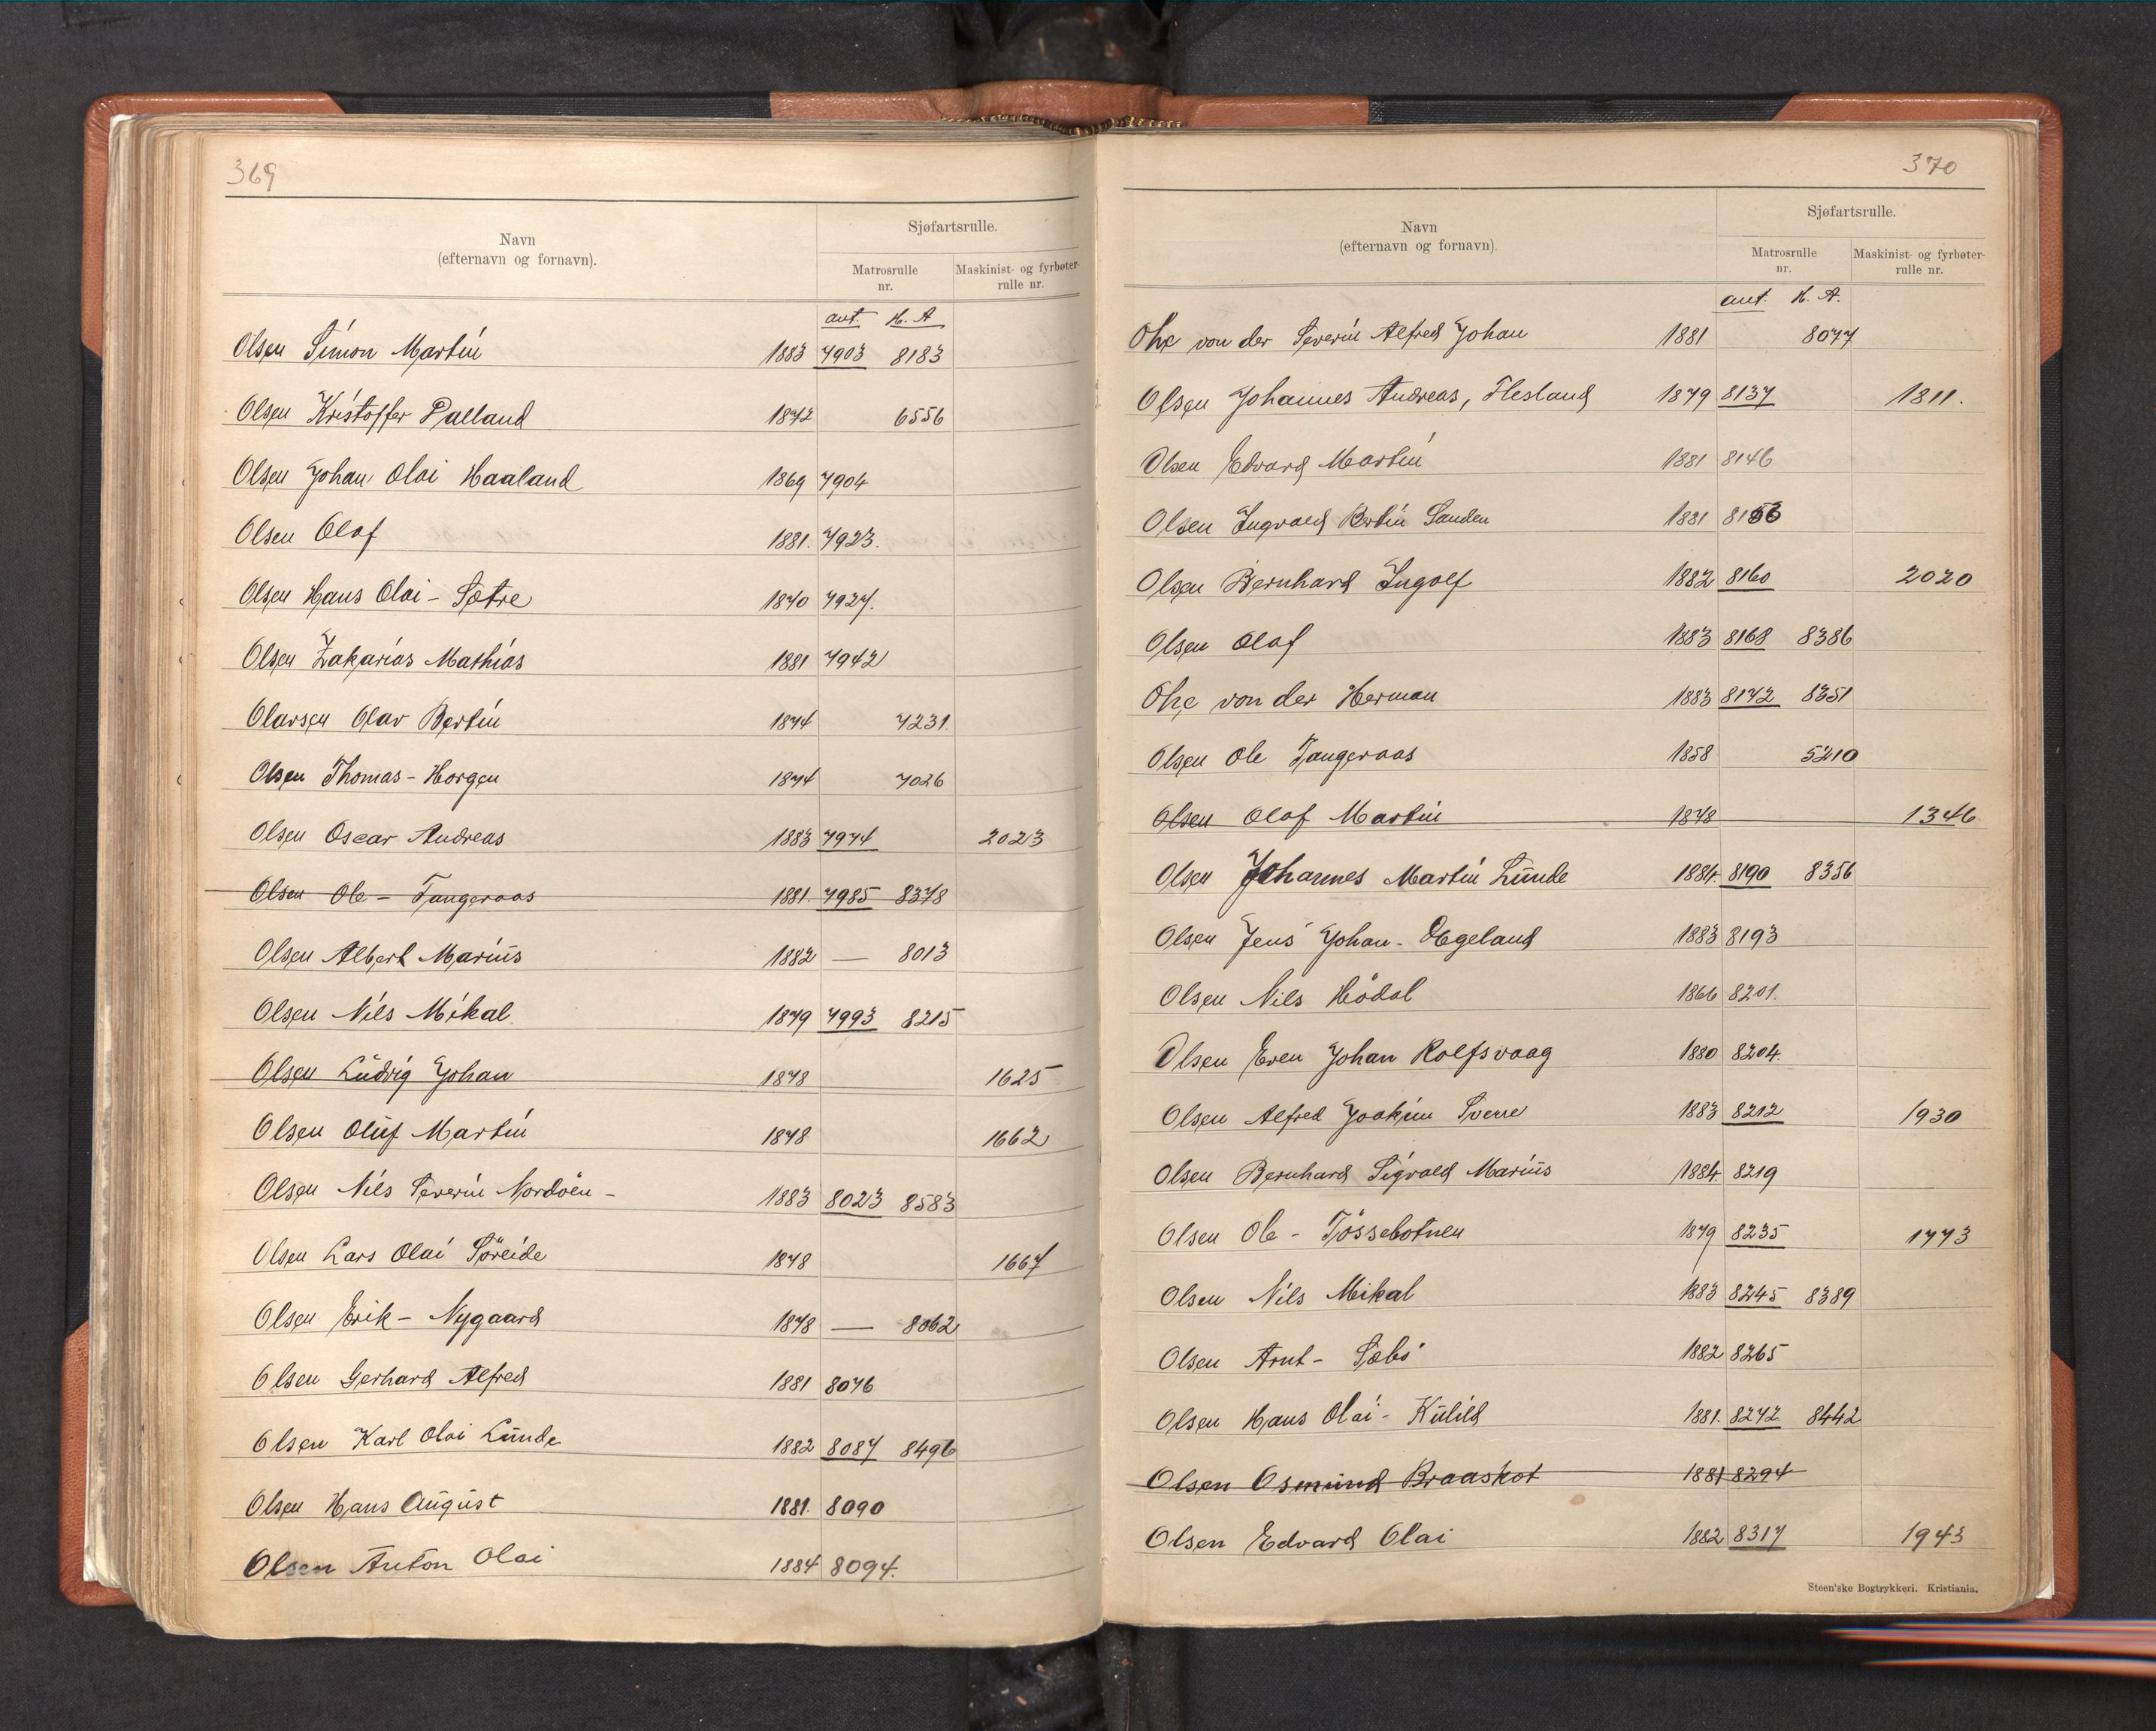 369
Navn
(efternavn og fornavn).
Sjøfartsrulle.
Matrosrulle
nr.
Maskinist- og fyrbøter-
rulle nr.
ant. H. A
Olsen Simon Martin 1883 7903 8183
Olsen Kristoffer Palland 1872 6556
Olsen Johan Olai Haaland 1869 7904
Olsen Olaf 1881. 7923.
Olsen Hans Olai - Sætre 1870 7927.
Olsen Zakarias Mathias 1881 7942
Olavsen Olav Bertin 1874 7231.
Olsen Thomas - Horgen 1874 7026
Olsen Oscar Andreas 1883 7974 2023
Olsen Ole - Tangeraas 1881. 7985 8378
Olsen Albert Marius 1882 — 8013
Olsen Nils Mikal 1879 7993 8215
Olsen Ludvig Johan 1878 1625
Olsen Oluf Martin 1878 1662
Olsen Nils Severin Nordöen - 1883 8023 8583
Olsen Lars Olai Söreide 1878 1667
Olsen Erik - Nygaard 1878 — 8062
Olsen Gerhard Alfred 1881 8076
Olsen Karl Olai Lunde 1882 8087 8496
Olsen Hans August 1881. 8090
Olsen Anton Olai 1884 8094.
370
Navn
(efternavn og fornavn).
Sjøfartsrulle.
Matrosrulle
nr.
Maskinist- og fyrbøter-
rulle nr.
ant. H. A.
Ohe von der Severin Alfred Johan 1881 8077
Olsen Johannes Andreas, Flesland 1879 8137 1811.
Olsen Edvard Martin 1881 8146
Olsen Ingvald Bertin Sanden 1881
Olsen Bernhard Ingolf 1882 8160 2020
Olsen Olaf 1883 8168 8386
Ohe von der Herman 1883 8172 8351
Olsen Ole Tangeraas 1858 5210
Olsen Olaf Martin 1878 1346
Olsen Johannes Martin Lunde 1884. 8190 8356
Olsen Jens Johan - Ægeland 1883 8193
Olsen Nils Hödal 1866 8201.
Olsen Even Johan Rolfsvaag 1880 8204.
Olsen Alfred Joakim Sverre 1883 8212 1930
Olsen Bernhard Sigvald Marius 1884. 8219
Olsen Ole - Tössebotnen 1879 8235 1773
Olsen Nils Mikal 1883 8245 8389
Olsen Arnt - Sæbö 1882 8265
Olsen Hans Olai - Kulild 1881. 8272 8442
Olsen Osmund Braaskot 1881 8294
Olsen Edvard Olai 1882 8317 1943
Steen'ske Bogtrykkeri. Kristiania.